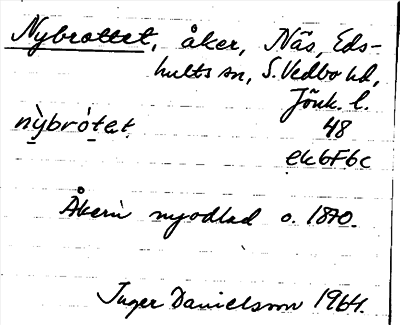 Nybrottet, åker, Näs, Eds-
hults sn, S. Vedbo hd,
Jönk. l.
nỳbrótet 48
ek6F6c
Åkern nyodlad o. 1870.
Inger Danielsson 1964.